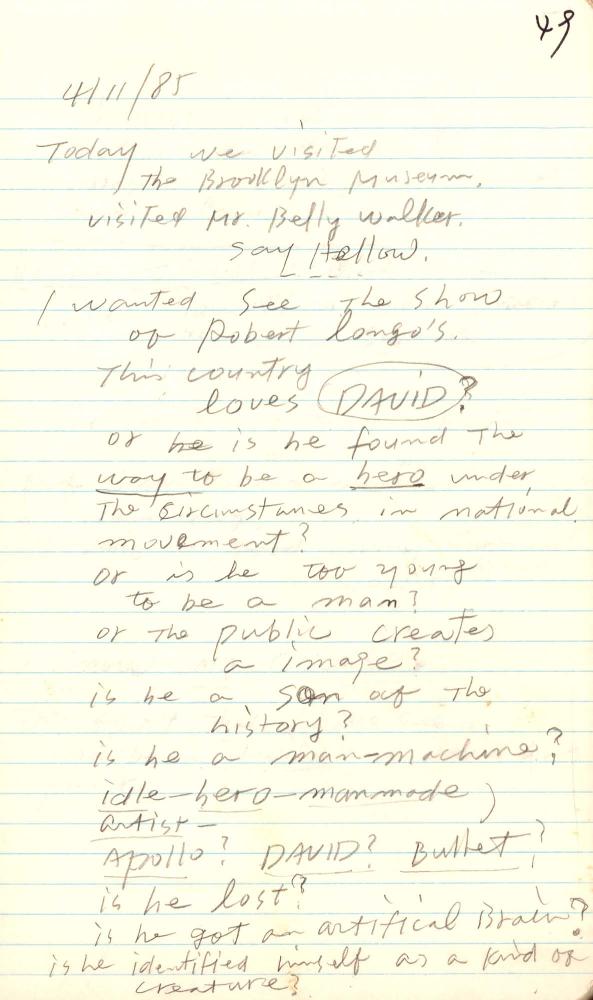 49
4/11/85
Today we visited
the Brooklyn Museum.
visited Mr. Belly Walker.
say Hellow.
I wanted see the show
of Robert Longo's.
This country
loves DAVID?
or he is he found The
way to be a hero under
The Circumstanes in national
movement?
or is he too young
to be a man?
or The public creates
a image?
is he a Son of The
history?
is he a man-machine?
idle-hero-manmade)
artist-
Apollo? DAVID? Bullet?
is he lost?
is he got an artifical Brain?
is he identified himself as a kind of
creature?